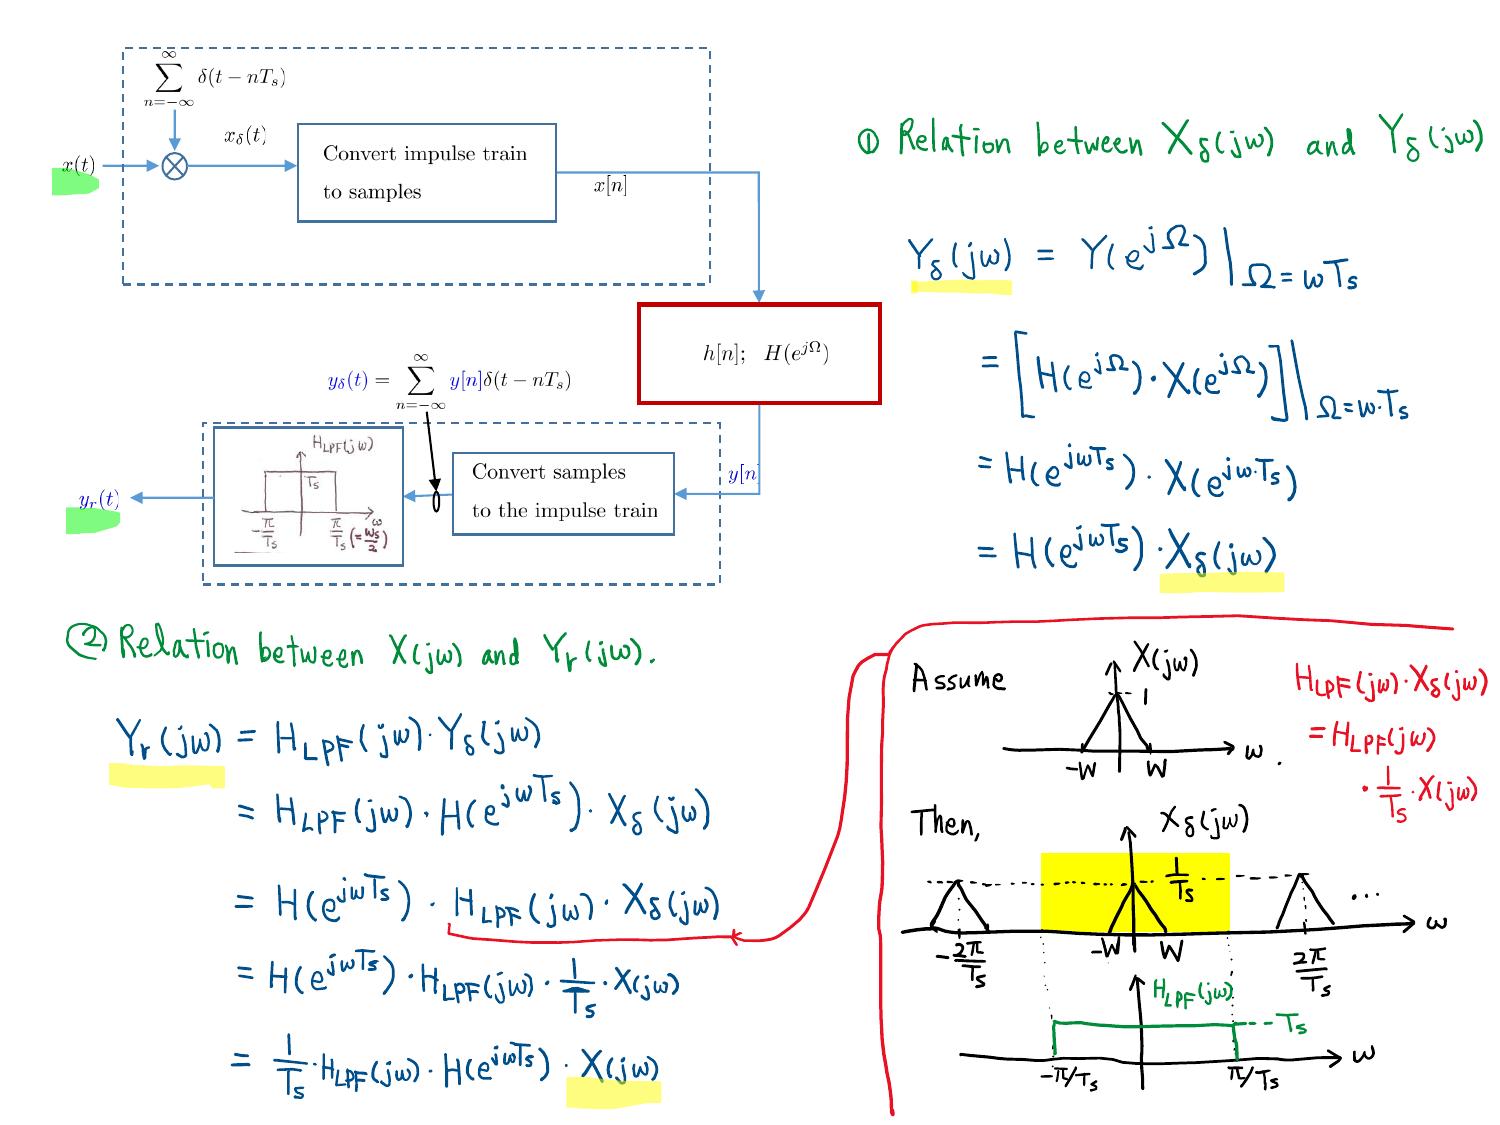 ∞
∑ δ(t − nTₛ)
n=−∞
x(t)
x_δ(t)
Convert impulse train
to samples
x[n]
h[n];  H(e^{jΩ})
∞
y_δ(t) = ∑ y[n]δ(t − nTₛ)
n=−∞
y[n]
Convert samples
to the impulse train
H_LPF(jω)
Tₛ
ω
-π/Tₛ  π/Tₛ (=ωₛ/2)
y_r(t)
① Relation between X_δ(jω) and Y_δ(jω)
Y_δ(jω) = Y(e^{jΩ})|_{Ω=ωTₛ}
= [H(e^{jΩ})·X(e^{jΩ})]|_{Ω=ω·Tₛ}
= H(e^{jωTₛ}) · X(e^{jω·Tₛ})
= H(e^{jωTₛ}) · X_δ(jω)
② Relation between X(jω) and Y_r(jω).
Y_r(jω) = H_LPF(jω)·Y_δ(jω)
= H_LPF(jω)·H(e^{jωTₛ})·X_δ(jω)
= H(e^{jωTₛ}) · H_LPF(jω)·X_δ(jω)
= H(e^{jωTₛ})·H_LPF(jω)·1/Tₛ·X(jω)
= 1/Tₛ·H_LPF(jω)·H(e^{jωTₛ})·X(jω)
Assume
X(jω)
1
-W  W  ω.
H_LPF(jω)·X_δ(jω)
= H_LPF(jω)
· 1/Tₛ · X(jω)
Then,
X_δ(jω)
1/Tₛ
...
ω
-2π/Tₛ  -W  W  2π/Tₛ
H_LPF(jω)
Tₛ
ω
-π/Tₛ  π/Tₛ